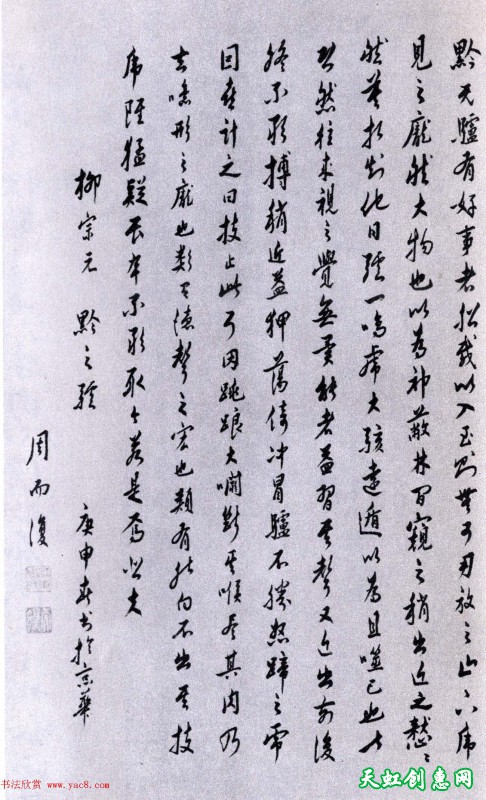 黔无驢有好事者船载以入至则無可用放之山下虎
見之龐然大物也以為神蔽林间窺之稍出近之慭〻
然莫相知他日驢一鳴虎大駭遠遁以為且噬己也甚
恐然往来視之覺無異能者益習其聲又近出前後
終不敢搏稍近益狎蕩倚冲冒驢不勝怒蹄之虎
因喜計之曰技止此耳因跳踉大㘚斷其喉盡其肉乃
去噫形之龐也類有德聲之宏也類有能向不出其技
虎雖猛疑畏卒不敢取今若是焉悲夫
柳宗元 黔之驢
庚申春书於京華
周而復
书法欣赏 www.yac8.com
天虹创惠网